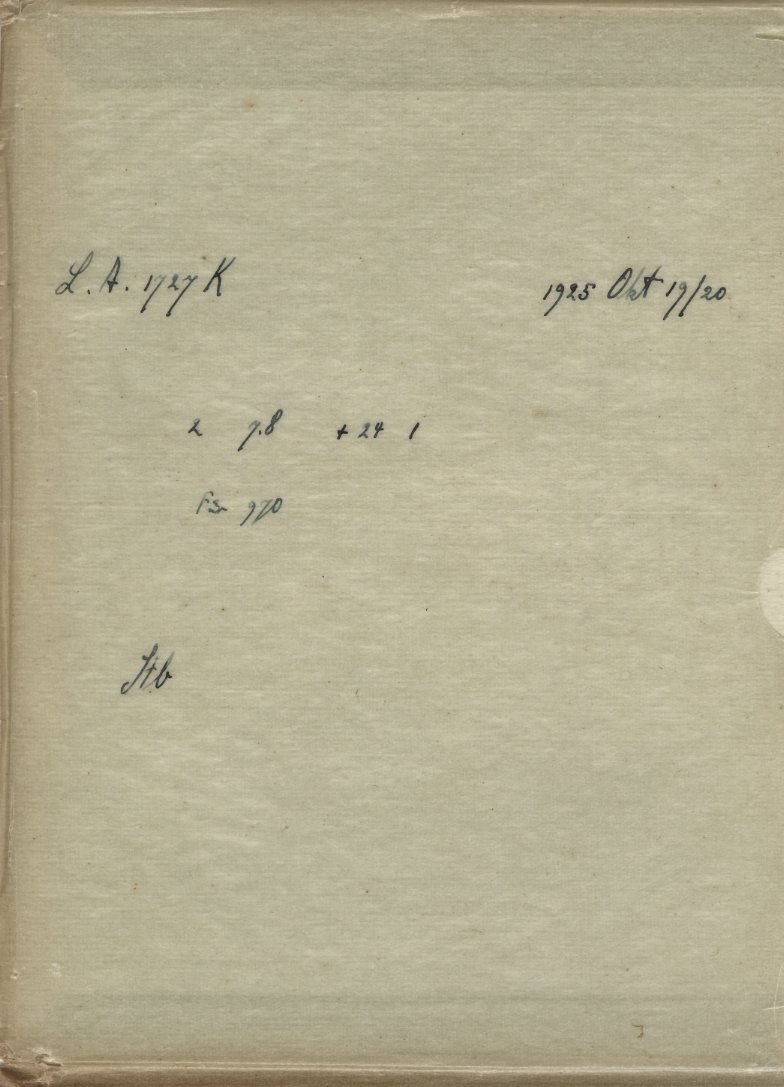 L. A. 1727 K 1925 Okt 19/20
2 7.8 + 24 1
970